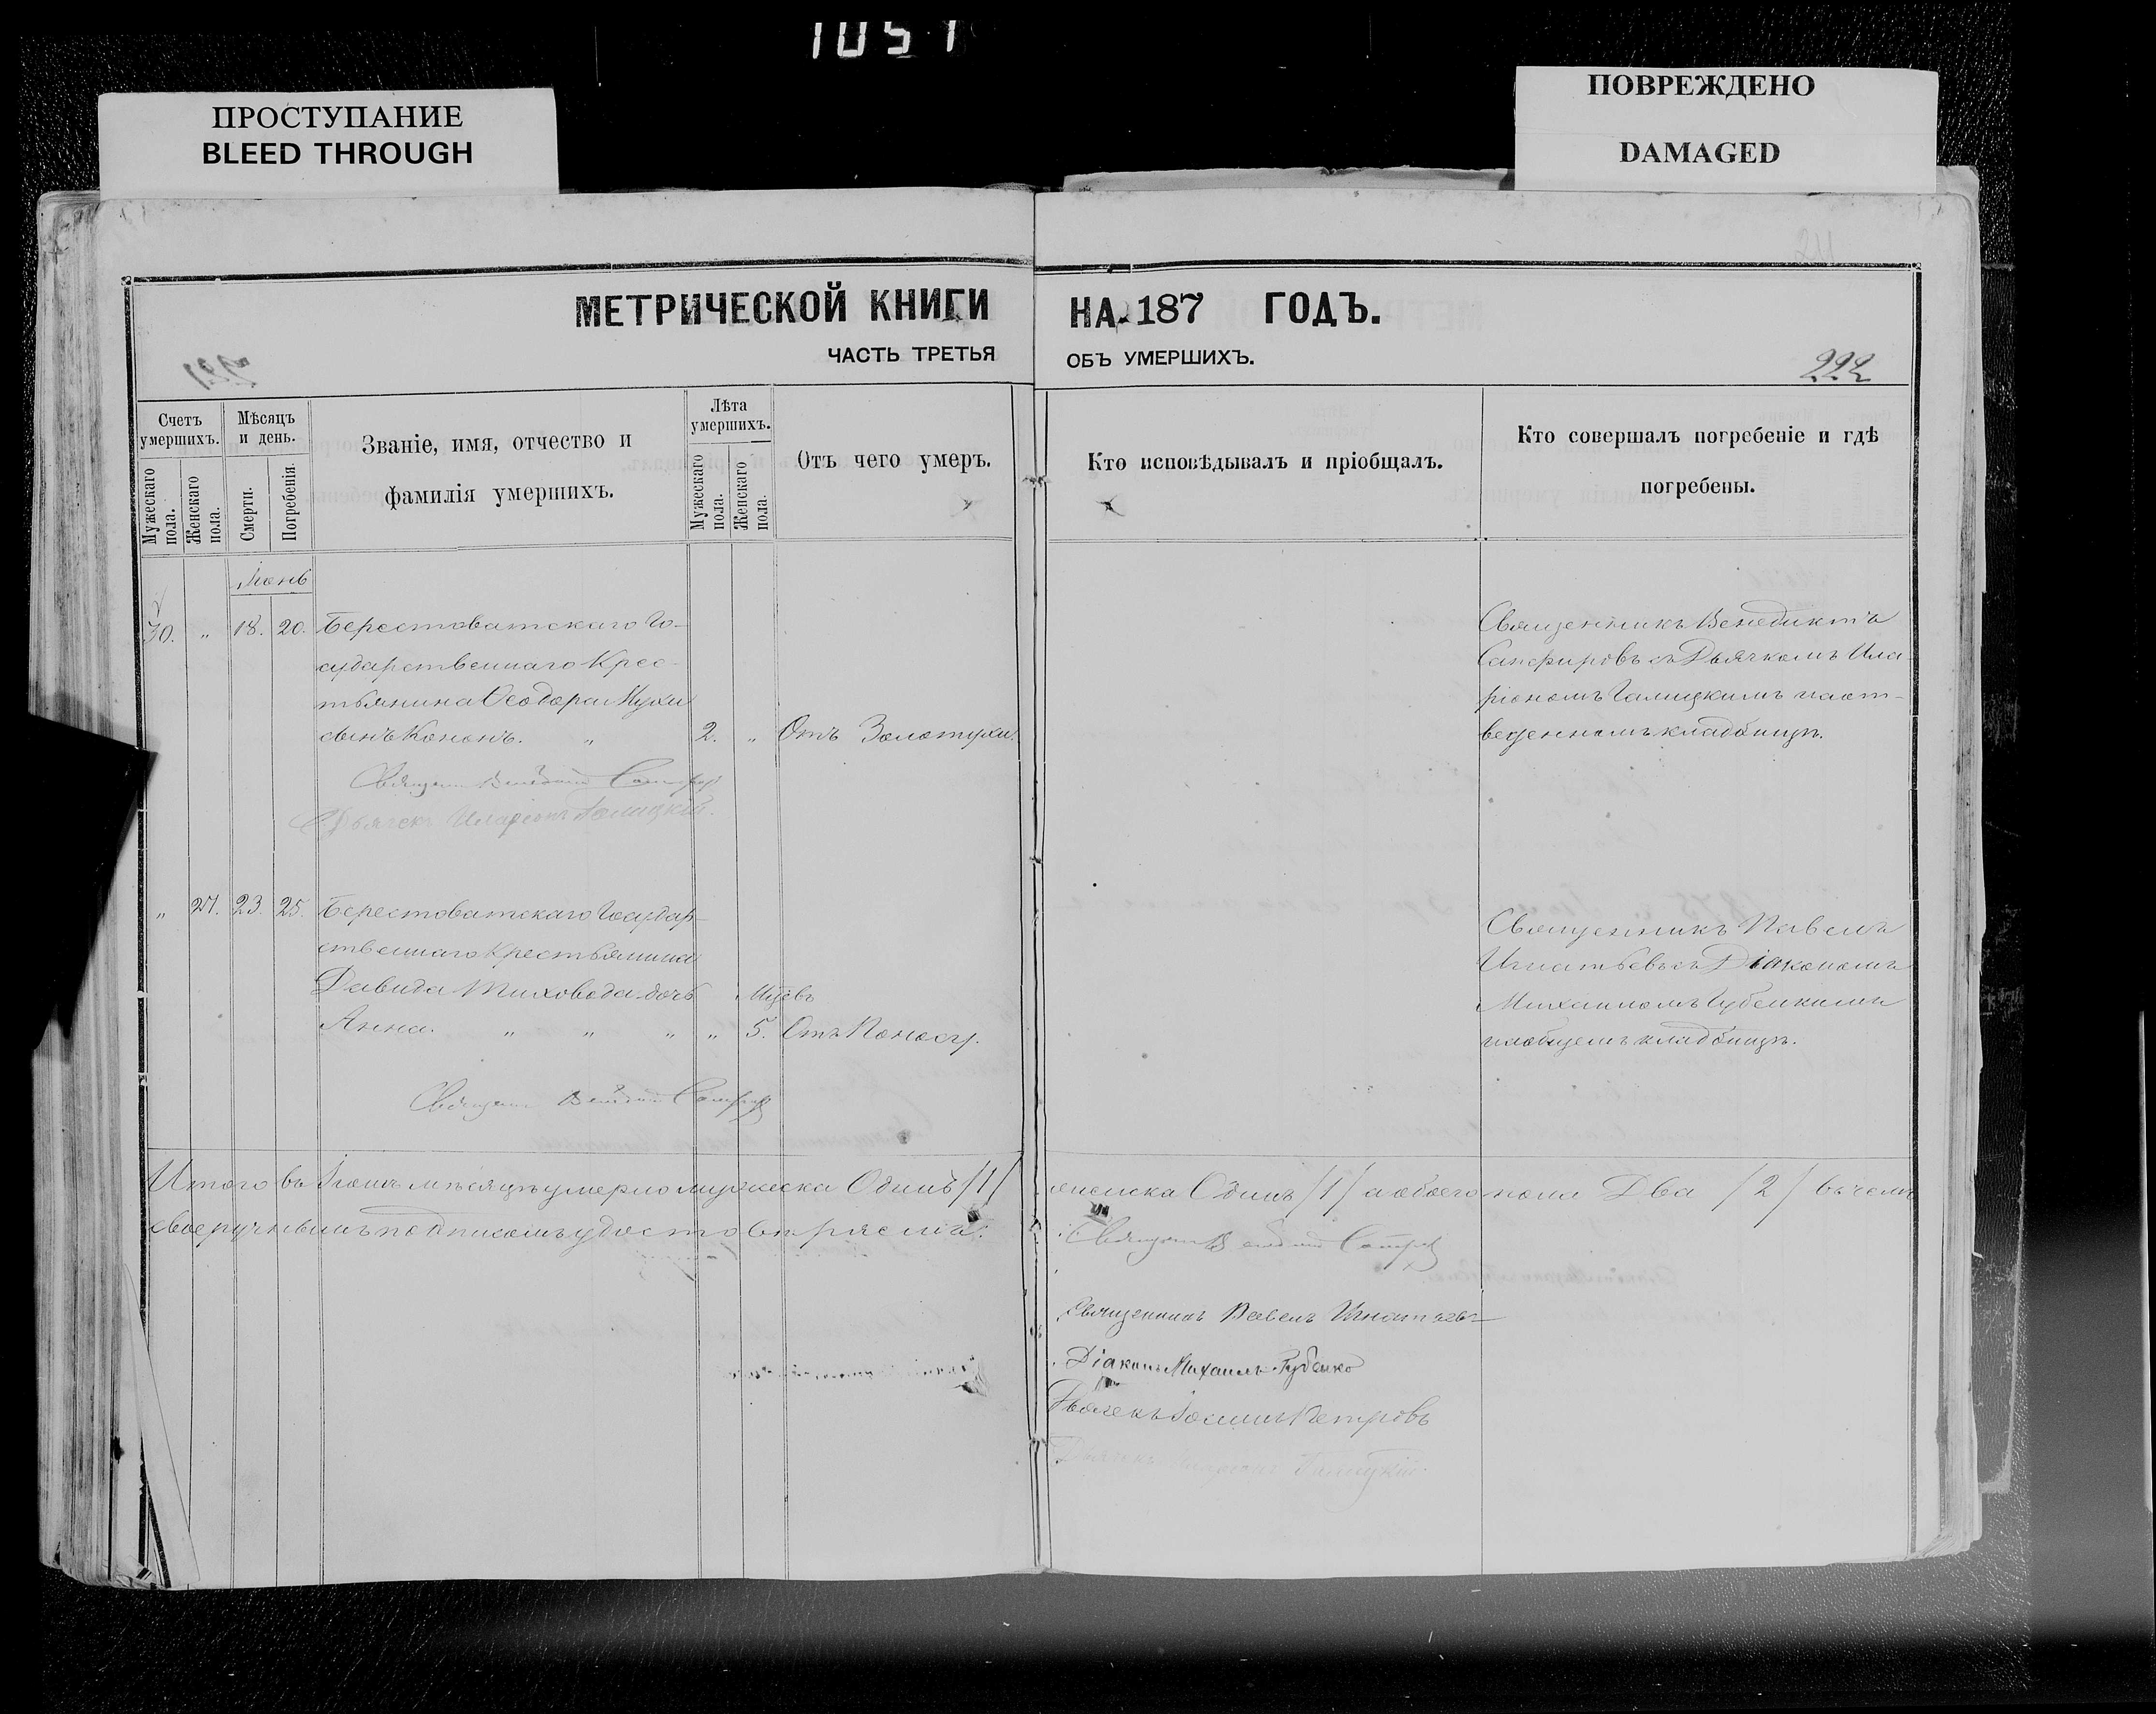 1051
ПРОСТУПАНИЕ
BLEED THROUGH
ПОВРЕЖДЕНО
DAMAGED
МЕТРИЧЕСКОЙ КНИГИ НА 187 ГОДЪ.
ЧАСТЬ ТРЕТЬЯ ОБЪ УМЕРШИХЪ.
221
222
Счетъ умершихъ.
Мужескаго пола.
Женскаго пола.
Мѣсяцъ и день.
Смерти.
Погребенія.
Званіе, имя, отчество и
фамилія умершихъ.
Лѣта умершихъ.
Мужескаго пола.
Женскаго пола.
Отъ чего умеръ.
Кто исповѣдывалъ и пріобщалъ.
Кто совершалъ погребеніе и гдѣ
погребены.
Іюнь
30. " 18. 20. Берестоватскаго Го-
сударственнаго Крес-
тьянина Ѳеодора
сынъ Кононъ. " 2. " Отъ Золотухи.
Священникъ Венедиктъ
Сапфировъ съ Дьячкомъ Ила
ріономъ Галицкимъ на от-
веденномъ кладбищѣ.
Дьячекъ Иларіонъ Галицкій.
" 27. 23. 25. Берестоватскаго Государ-
ственнаго Крестьянина
Давида Тиховода дочь Мцевъ
Анна. " " " " 5. Отъ Поносу.
Священникъ Павелъ
Игнатьевъ съ Діакономъ
Михаиломъ Губенкимъ
на общемъ кладбищѣ.
Итого въ Іюнѣ мѣсяцѣ умерло мужеска Одинъ /1/ женска Одинъ /1/ а обоего пола Два /2/ въ чемъ
своеручнымъ подписомъ удостовѣряемъ:
Священникъ Павелъ Игнатьевъ
Діаконъ Михаилъ Губенко
Дьячекъ Іоаннъ Петровъ
Дьячекъ Иларіонъ Галицкій.